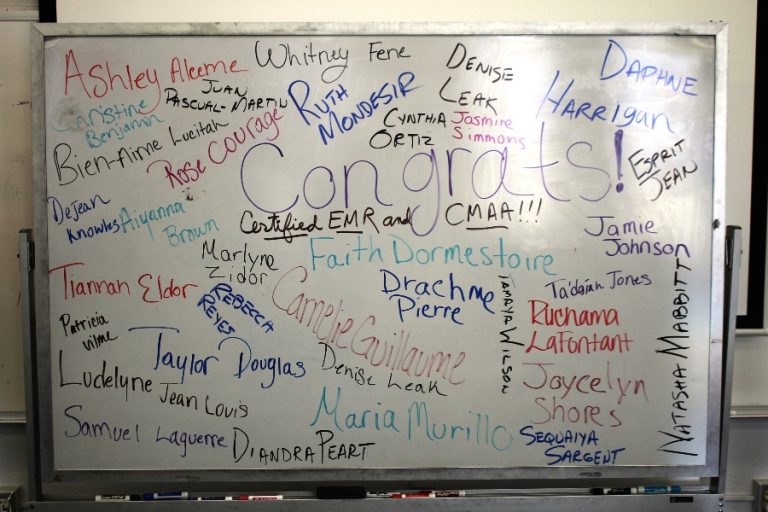 Ashley Aleeme
Whitney Fene
Denise
Leak
Daphne
Harrigan
Christine
Benjamin
Juan
Pascual-Martin
Ruth
Mondesir
Cynthia
Ortiz
Jasmire
Simmons
Bien-Aime Lucitah
Rose Courage
Congrats!
Esprit
Jean
DeJean
Knowles
Aiyanna
Brown
Certified EMR and CMAA!!!
Jamie
Johnson
Marlyne
Zidor
Faith Dormestoire
Tiannah Eldor
Rebecca
Reyes
Camelie Guillaume
Drachme
Pierre
Tamryp Wilson
Ta'dajah Jones
Ruchama
LaFontant
Natasha Mabbitt
Patricia
Vilme
Taylor Douglas
Denise Leak
Ludelyne
Jean Louis
Joycelyn
Shores
Samuel Laguerre
Diandra Peart
Maria Murillo
Sequaiya
Sargent